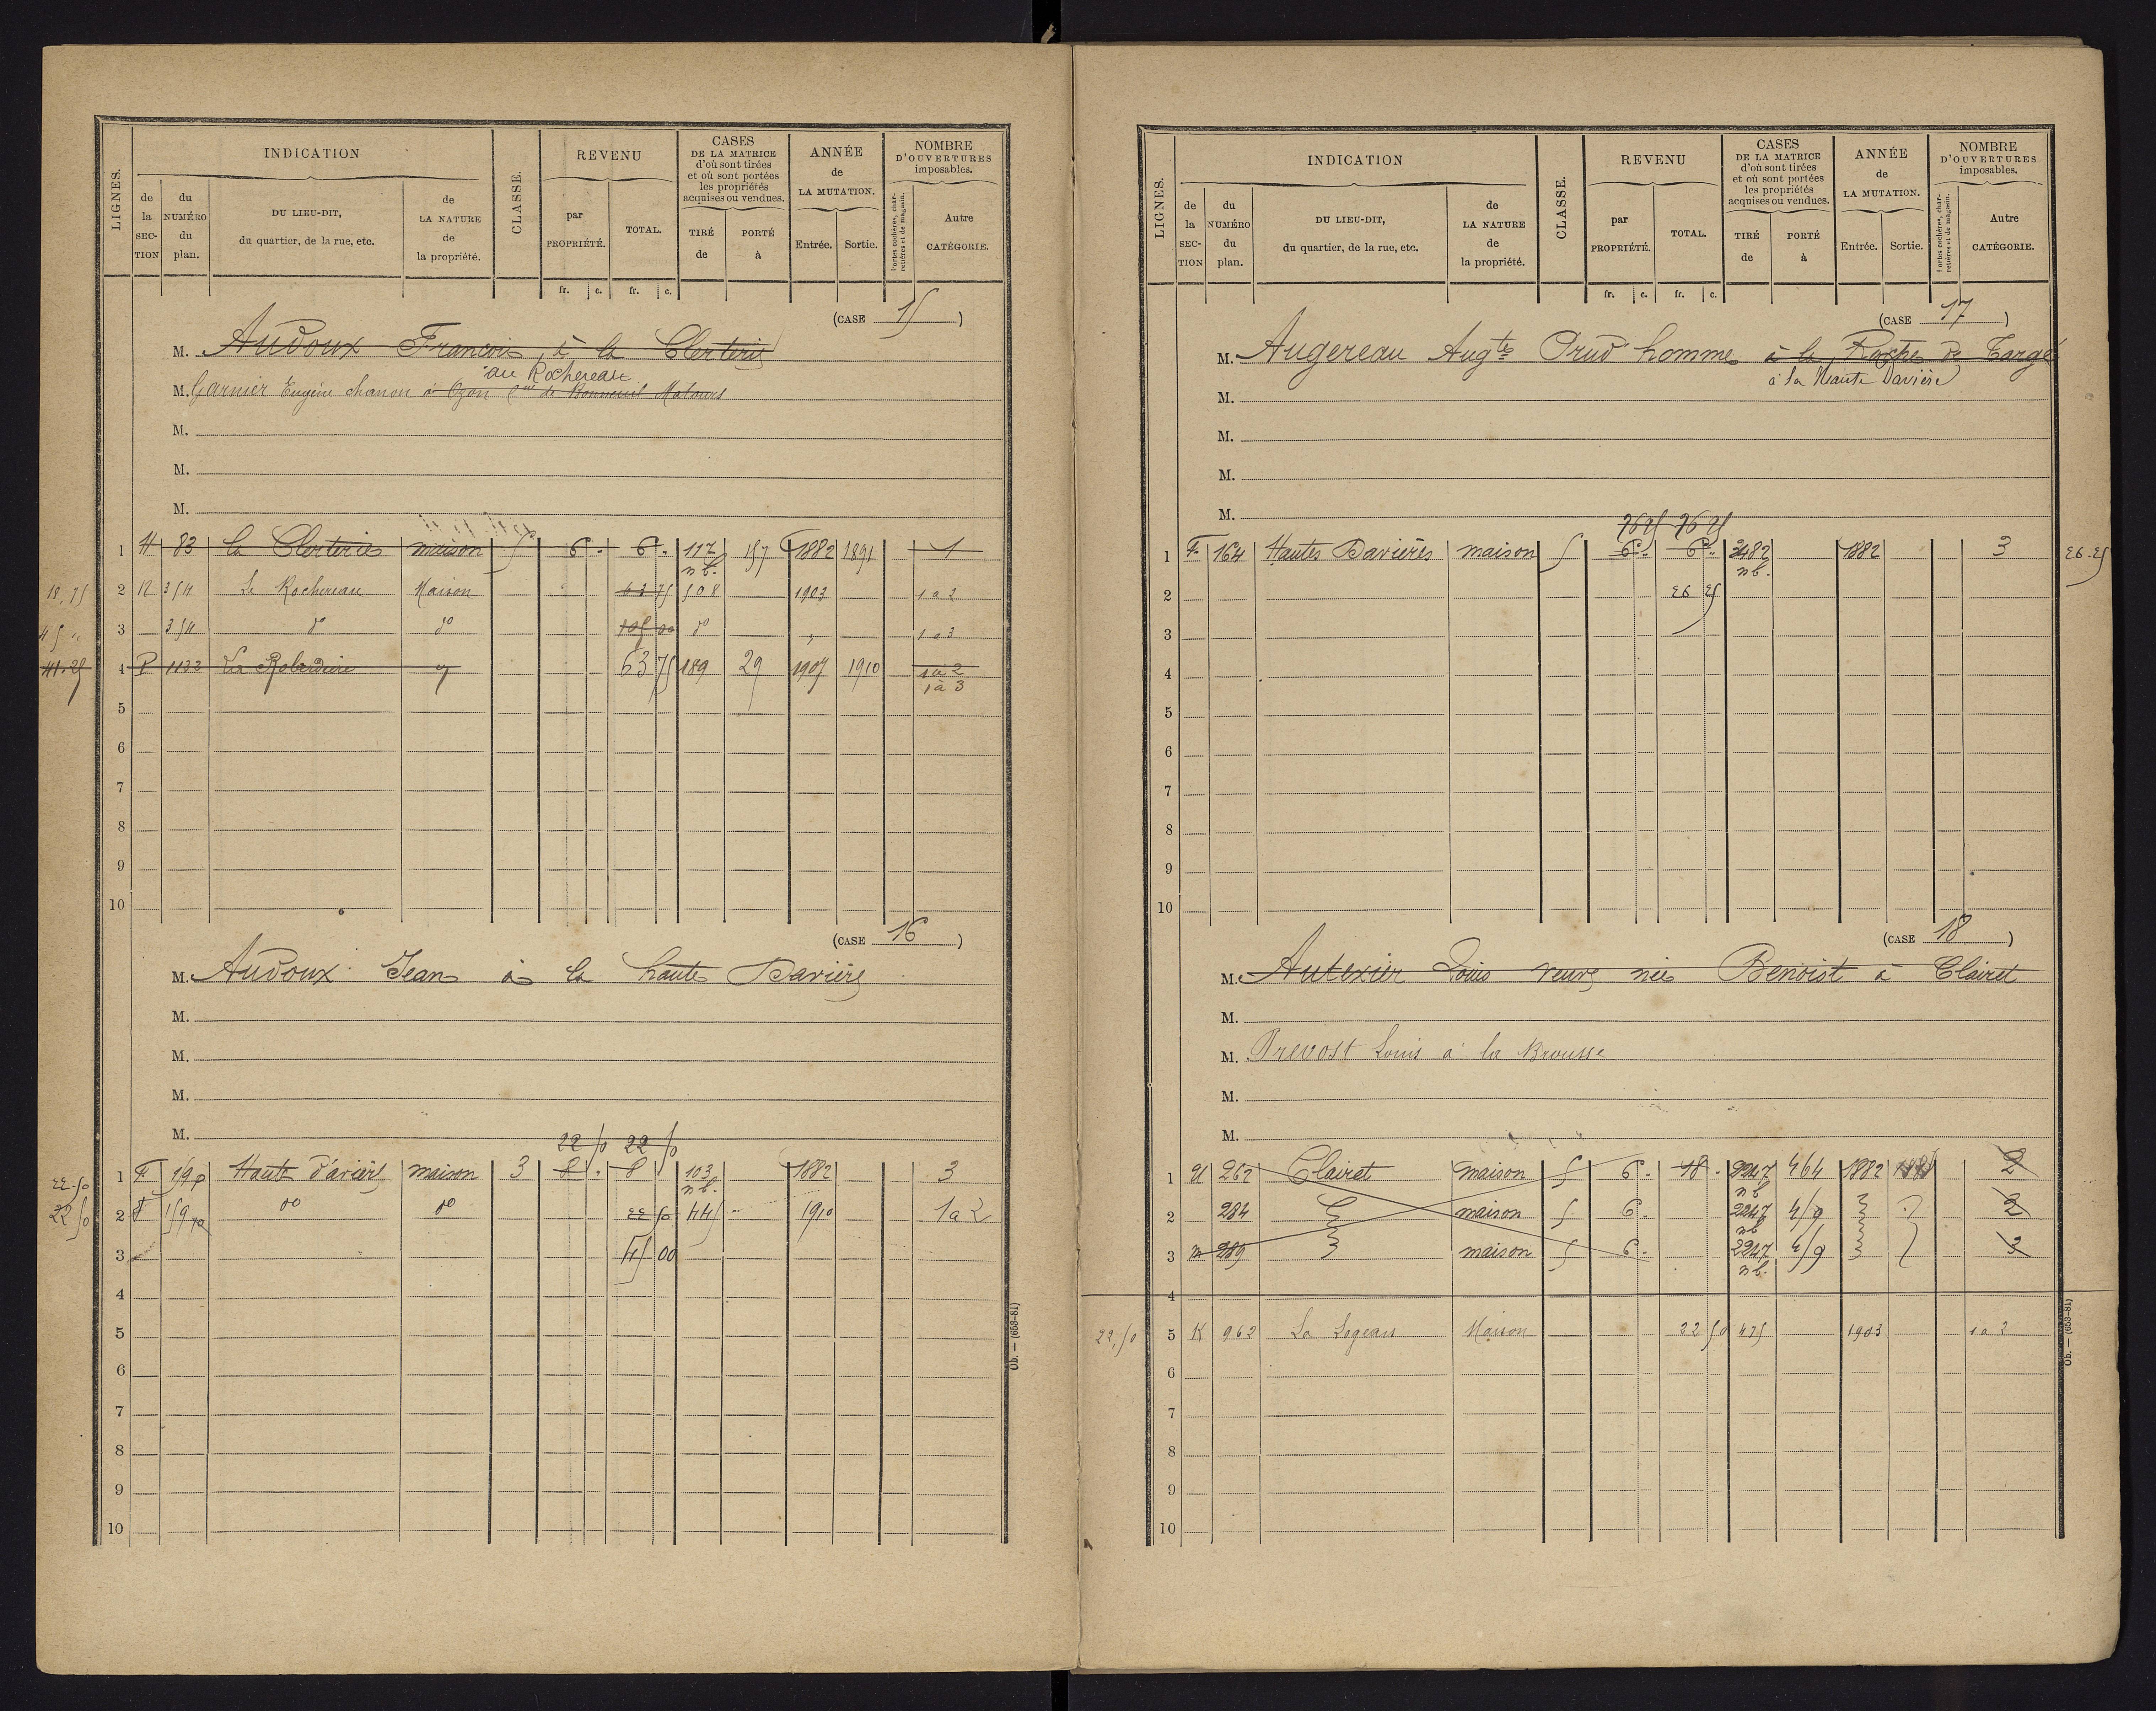 LIGNES.
INDICATION
de la SECTION
du NUMÉRO du plan.
DU LIEU-DIT, du quartier, de la rue, etc.
de LA NATURE de la propriété.
CLASSE.
REVENU
par PROPRIÉTÉ.
TOTAL.
CASES DE LA MATRICE d'où sont tirées et où sont portées les propriétés acquises ou vendues.
TIRÉ de
PORTÉ à
ANNÉE de LA MUTATION.
Entrée.
Sortie.
NOMBRE D'OUVERTURES imposables.
Portes cochères, charretières et de magasin.
Autre CATÉGORIE.
fr. c. fr. c.
(CASE 15)
M. Audoux François, à la Clerterie
au Rochereau
M. Garnier Eugène chanon à Ozon cne de Bonneuil Matours
M.
M.
M.
1 H 83 la Clerterie maison 5 6 " 6 " 117 157 1882 1891 1
n b.
18,75 2 N 354 Le Rochereau Maison 63 75 508 1903 1 a 2
45 " 3 354 do do 105 00 do " 1 a 3
41.25 4 P 1122 La Roberdière 63 75 189 29 1907 1910 1 à 2
1 à 3
5
6
7
8
9
10
(CASE 16)
M. Audoux Jean à la haute Davière
M.
M.
M.
M.
22 50 22 50
22 50 1 F 190 Haute Davière maison 3 8 " 8 103 1882 3
n b.
22 50 2 F do do 22 50 445 1910 1 a 2
3 45 00
4
5
6
7
8
9
10
Ob. — (653-81)
LIGNES.
INDICATION
de la SECTION
du NUMÉRO du plan.
DU LIEU-DIT, du quartier, de la rue, etc.
de LA NATURE de la propriété.
CLASSE.
REVENU
par PROPRIÉTÉ.
TOTAL.
CASES DE LA MATRICE d'où sont tirées et où sont portées les propriétés acquises ou vendues.
TIRÉ de
PORTÉ à
ANNÉE de LA MUTATION.
Entrée.
Sortie.
NOMBRE D'OUVERTURES imposables.
Portes cochères, charretières et de magasin.
Autre CATÉGORIE.
fr. c. fr. c.
(CASE 17)
M. Augereau Augte Prud homme à la Roche de Targé
à la Haute Davière
M.
M.
M.
M.
26 25 26 25
1 F 164 Hautes Davières maison 5 6 " 6 " 2482 1882 3 26.25
n b.
2 26 25
3
4
5
6
7
8
9
10
(CASE 18)
M. Autexier Louis veuve née Benoist à Clairet
M.
M. Prevost Louis à la Brousse
M.
M.
1 U 262 Clairet maison 5 6 " 18 " 2247 464 1882 2
n b
2 284 maison 5 6 " 2247 2
n b
3 289 maison 5 6 " 2247 3
n b.
4
22,50 5 K 962 La Logeais Maison 22 50 475 1903 1 a 2
6
7
8
9
10
Ob. — (653-81)